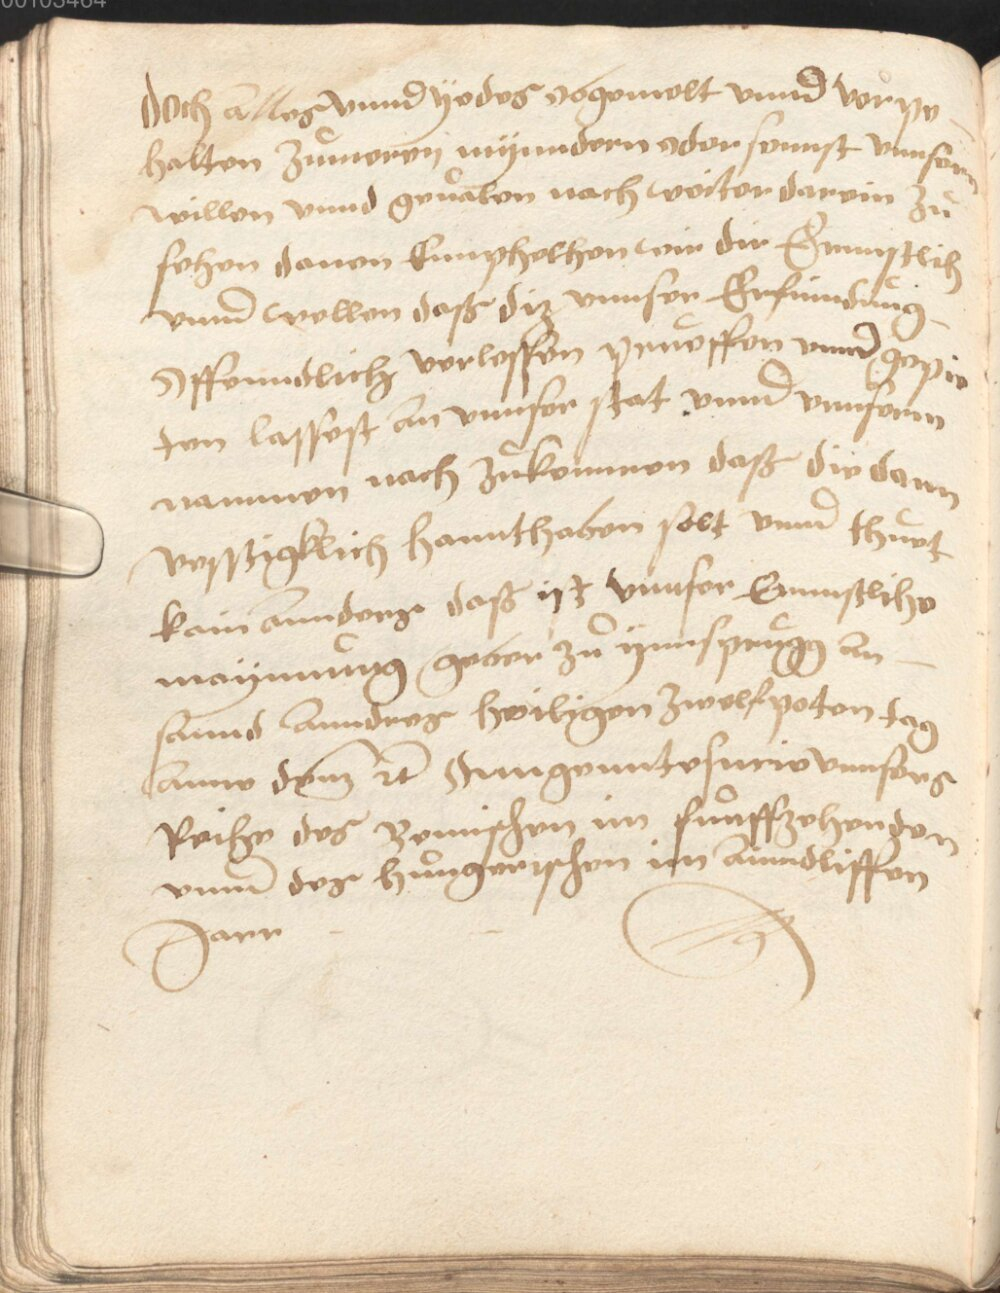 00103464
doch alles vnnd yedes obgemelt vnnd vorpe-
halten zůmeren mynndern oder sonnst vnnsern
willen vnnd geuallen nach weiter darein zů
sehen dauon Emphelhen wir dir Ernnstlich
vnnd wellen daß diz vnnser Erfindung
Offenndlich verlessen prueffen vnnd gepie
ten lassest an vnnser stat vnnd vnnserm
nammen nach zůkommen daß die dann
vesstigklich hannthaben solt vnnd thuet
kain annders daß ist vnnser Ernnstliche
maynnung geben zů ynnsprugg an
sannd anndres heiligen zwelfpoten tag
anno dom̃ rc̃ vnnsers
Reichs des Romischen im funffzehenden
vnnd des hungerischen im ainndliffen
Jarr